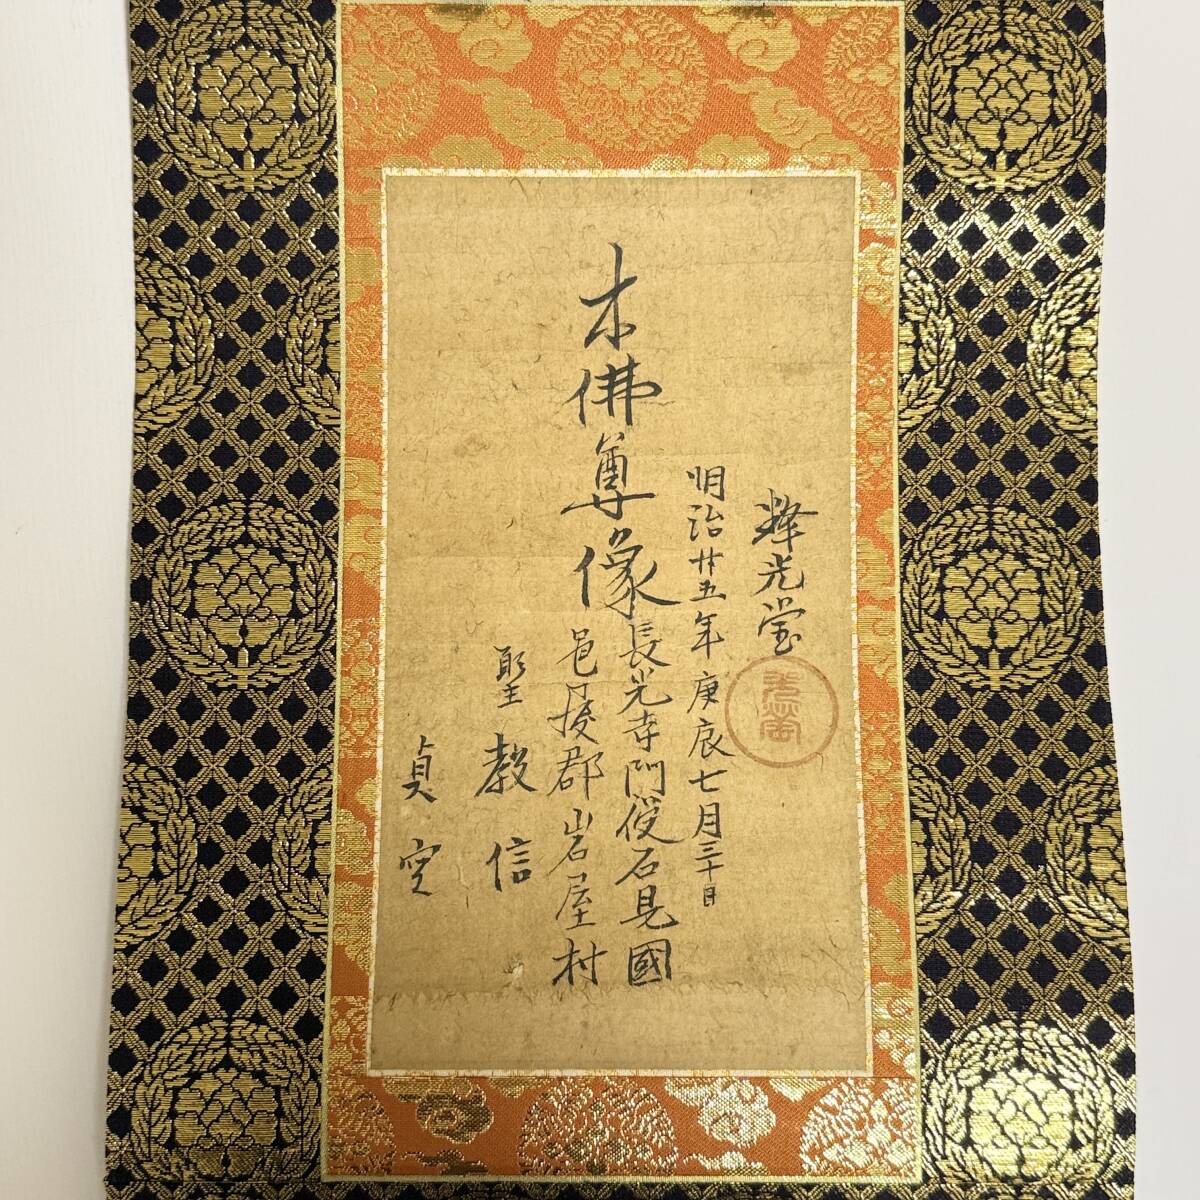 釋光瑩
明治廿五年庚辰七月三十日
木佛尊像
長光寺門 石見國
邑陵郡岩屋村
聖教信
貞空